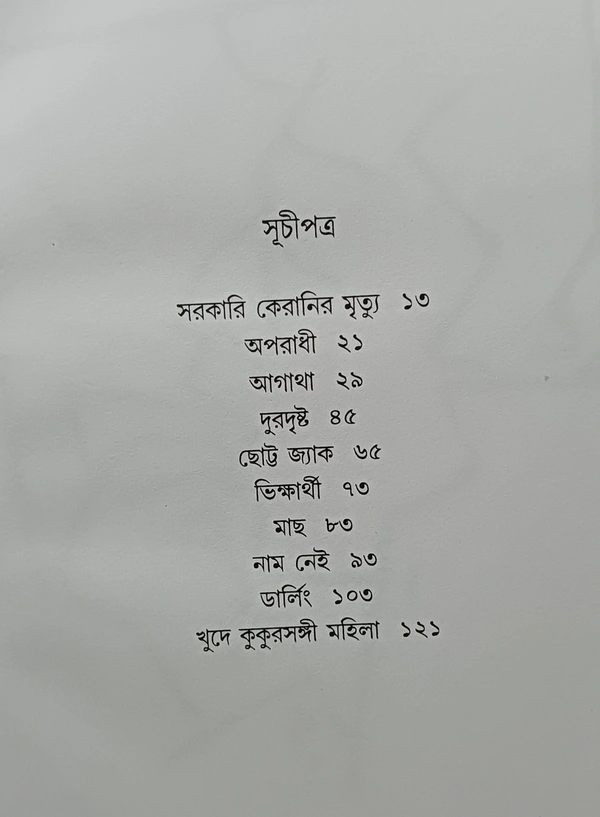 সূচীপত্র
সরকারি কেরানির মৃত্যু ১৩
অপরাধী ২১
আগাথা ২৯
দুরদৃষ্ট ৪৫
ছোট্ট জ্যাক ৬৫
ভিক্ষার্থী ৭৩
মাছ ৮৩
নাম নেই ৯৩
ডার্লিং ১০৩
খুদে কুকুরসঙ্গী মহিলা ১২১